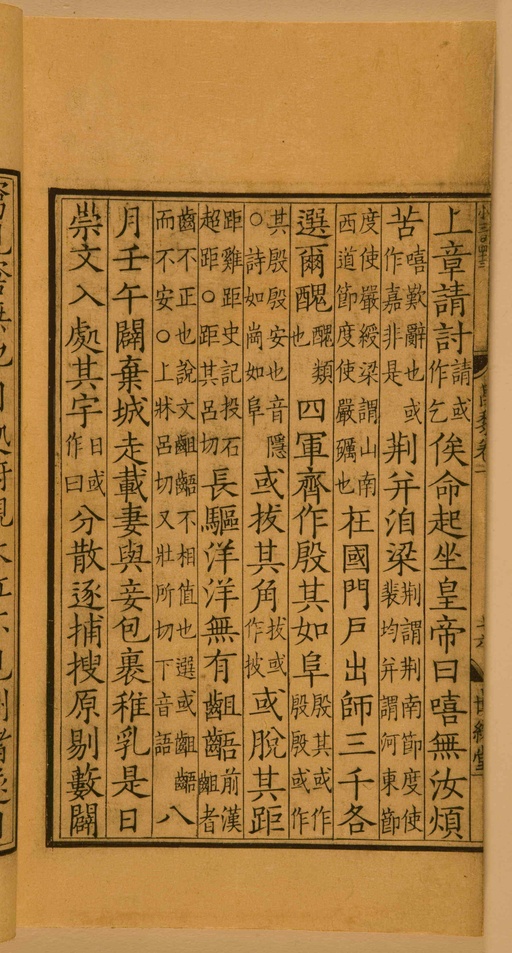 上章請討請或作乞俟命起坐皇帝曰嘻無汝煩
苦嘻歎辭也或作嘉非是荆并洎梁荆謂荆南節度使裴均并謂河東節
度使嚴綬梁謂山南西道節度使嚴礪也在國門戶出師三千各
選爾醜醜類也四軍齊作殷其如阜殷其或作殷殷或作
其殷殷安也音隱○詩如崗如阜或拔其角拔或作披或脫其距
距雞距史記投石超距○距其呂切長驅洋洋無有齟齬前漢齟者
齒不正也說文齟齬不相值也選或齟齬而不安○上牀呂切又壯所切下音語八
月壬午闢棄城走載妻與妾包裹稚乳是日
崇文入處其宇日或作曰分散逐捕搜原剔藪闢
世綵堂